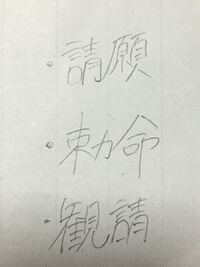 ・請願
・勅命
・観請